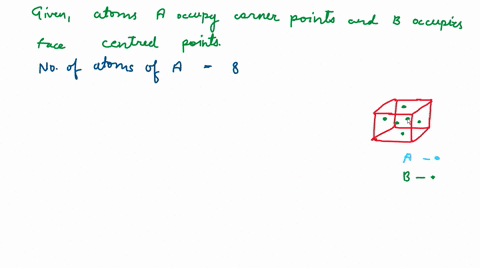 Given, atoms A occupy corner points and B occupies
face centred points.
No. of atoms of A = 8
A - •
B - •